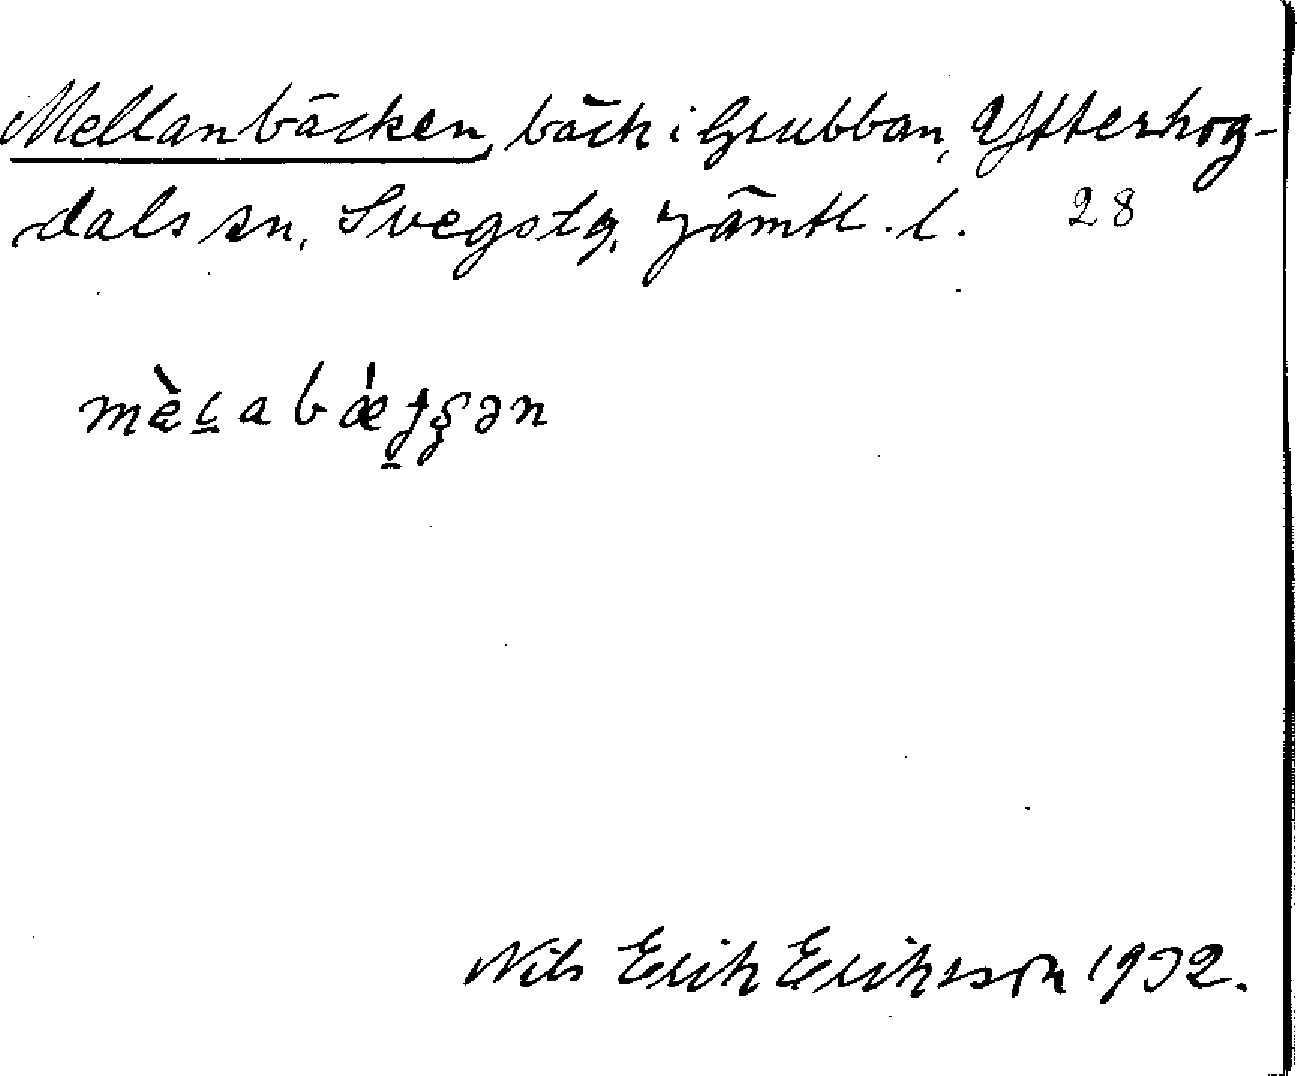 Mellanbäcken, bäck i Grubban, Ytterhog-
dals sn, Svegs tg, Jämtl. l. 28
Nils Erik Eriksson 1932.